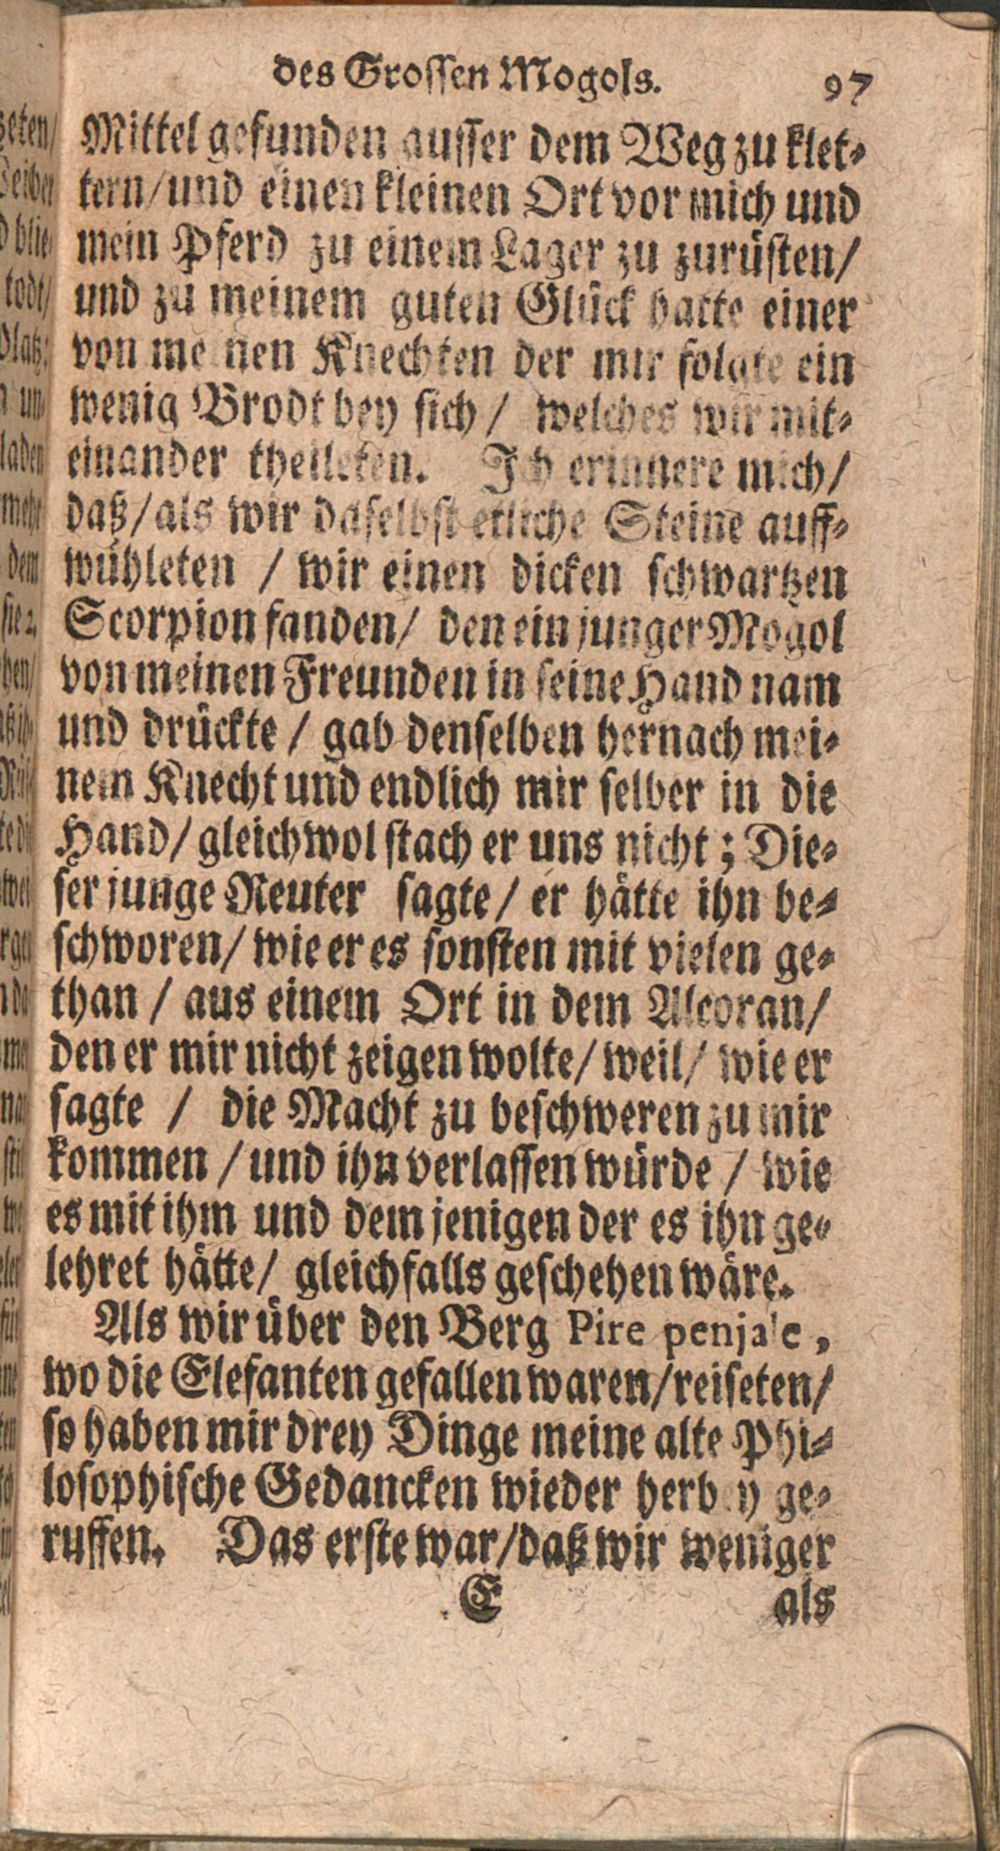 des Grossen Mogols. 97
Mittel gefunden ausser dem Weg zu klet-
tern/ und einen kleinen Ort vor mich und
mein Pferd zu einem Lager zu zurüsten/
und zu meinem guten Glück hatte einer
von meinen Knechten der mir folgte ein
wenig Brodt bey sich / welches wir mit-
einander theileten. Ich erinnere mich/
daß/ als wir daselbst etliche Steine auff-
wühleten / wir einen dicken schwartzen
Scorpion fanden/ den ein junger Mogol
von meinen Freunden in seine Hand nam
und drückte / gab denselben hernach mei-
nem Knecht und endlich mir selber in die
Hand/ gleichwol stach er uns nicht; Die-
ser junge Reuter sagte/ er hätte ihn be-
schworen/ wie er es sonsten mit vielen ge-
than / aus einem Ort in dem Alcoran/
den er mir nicht zeigen wolte/ weil/ wie er
sagte / die Macht zu beschweren zu mir
kommen / und ihn verlassen würde / wie
es mit ihm und dem jenigen der es ihn ge-
lehret hätte/ gleichfalls geschehen wäre.
Als wir über den Berg Pire penjale,
wo die Elefanten gefallen waren/ reiseten/
so haben mir drey Dinge meine alte Phi-
losophische Gedancken wieder herbey ge-
ruffen. Das erste war/ daß wir weniger
E als